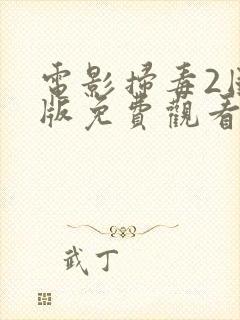 電影掃毒2
版免費觀看
武丁